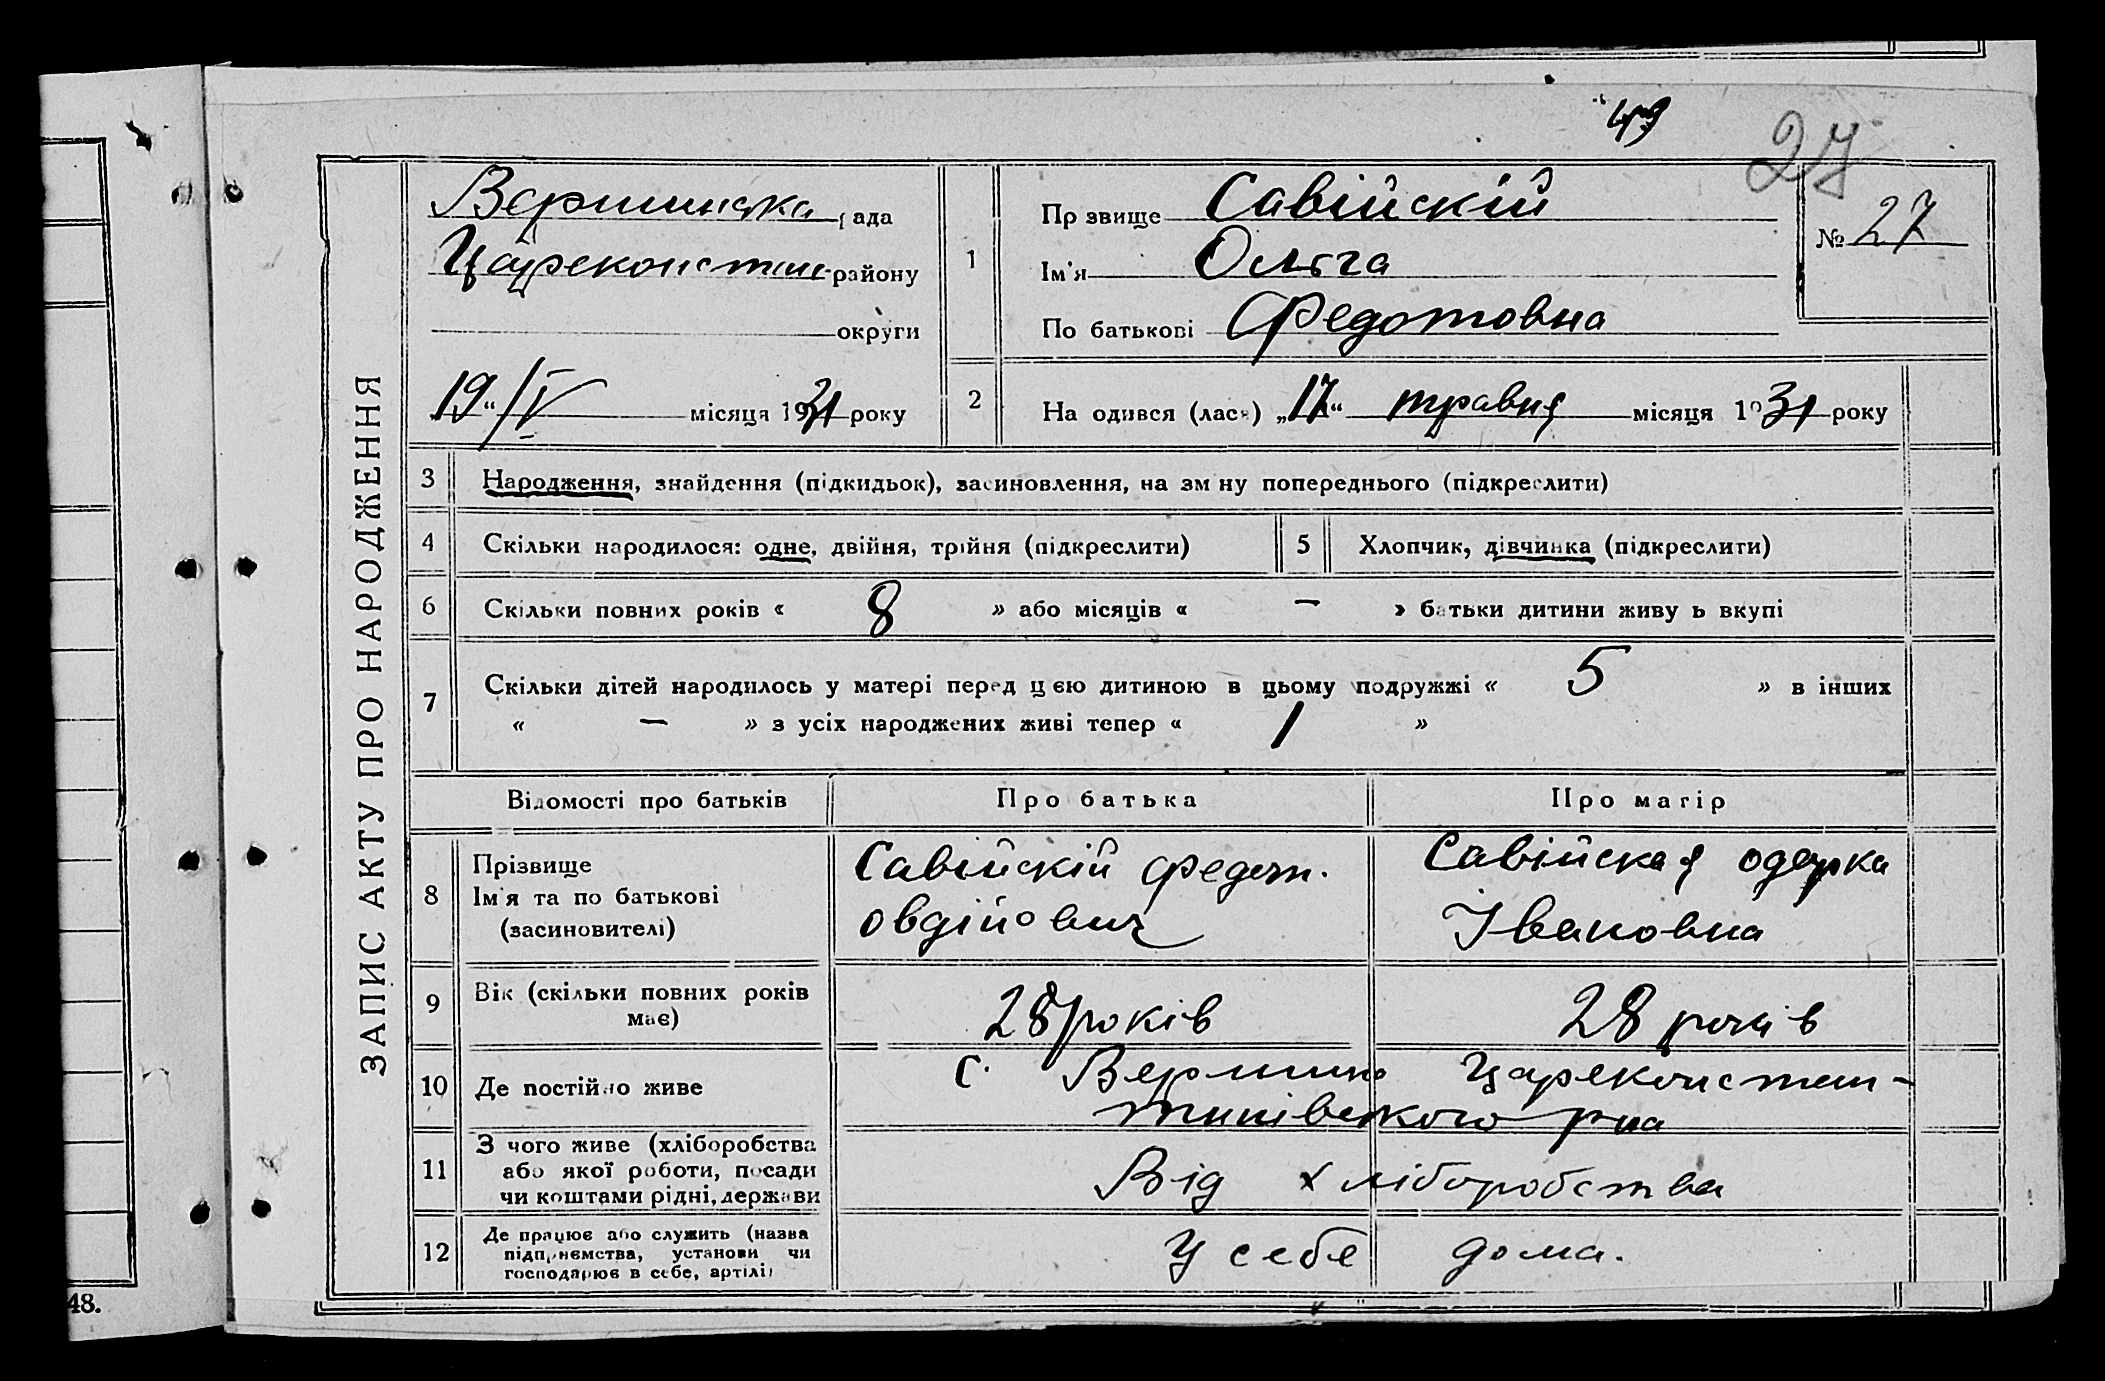 49
27
ЗАПИС АКТУ ПРО НАРОДЖЕННЯ
Вершинска рада
Цареконстан- району
округи
19 "/V місяця 1931 року
1
Прізвище Савійскій
Ім'я Ольга
По батькові Федотовна
№ 27
2
На одився (лася) „17“ травня місяця 1931 року
3 Народження, знайдення (підкидьок), засиновлення, на зміну попереднього (підкреслити)
4 Скільки народилося: одне, двійня, трійня (підкреслити)
5 Хлопчик, дівчинка (підкреслити)
6 Скільки повних років « 8 » або місяців « – » батьки дитини живуть вкупі
7 Скільки дітей народилось у матері перед цією дитиною в цьому подружжі « 5 » в інших
« – » з усіх народжених живі тепер « 1 »
Відомості про батьків
Про батька
Про матір
8 Прізвище
Ім'я та по батькові
(засиновителі)
Савійскій Федот.
Овдійович
Савійская
Івановна
9 Вік (скільки повних років
має)
28 років
28 років
10 Де постійно живе
с. Вершино Цареконстан-
тинівского р-на
11 З чого живе (хліборобства
або якої роботи, посади
чи коштами рідні, держави
Від хліборобства
12 Де працює або служить (назва
підприємства, установи чи
господарює в себе, артілі)
У себе дома.
48.